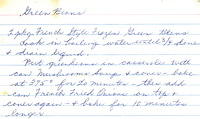 Green Beans
2 pkg. French Style Frozen Green Beans
Cook in boiling water until 3/4 done
& drain liquid.
Put greenbeans in casserole with
can Mushroom Soup & cover - bake
at 375° for 20 minutes - then add
can French Fried Onions on top &
cover again - & bake for 10 minutes
longer.